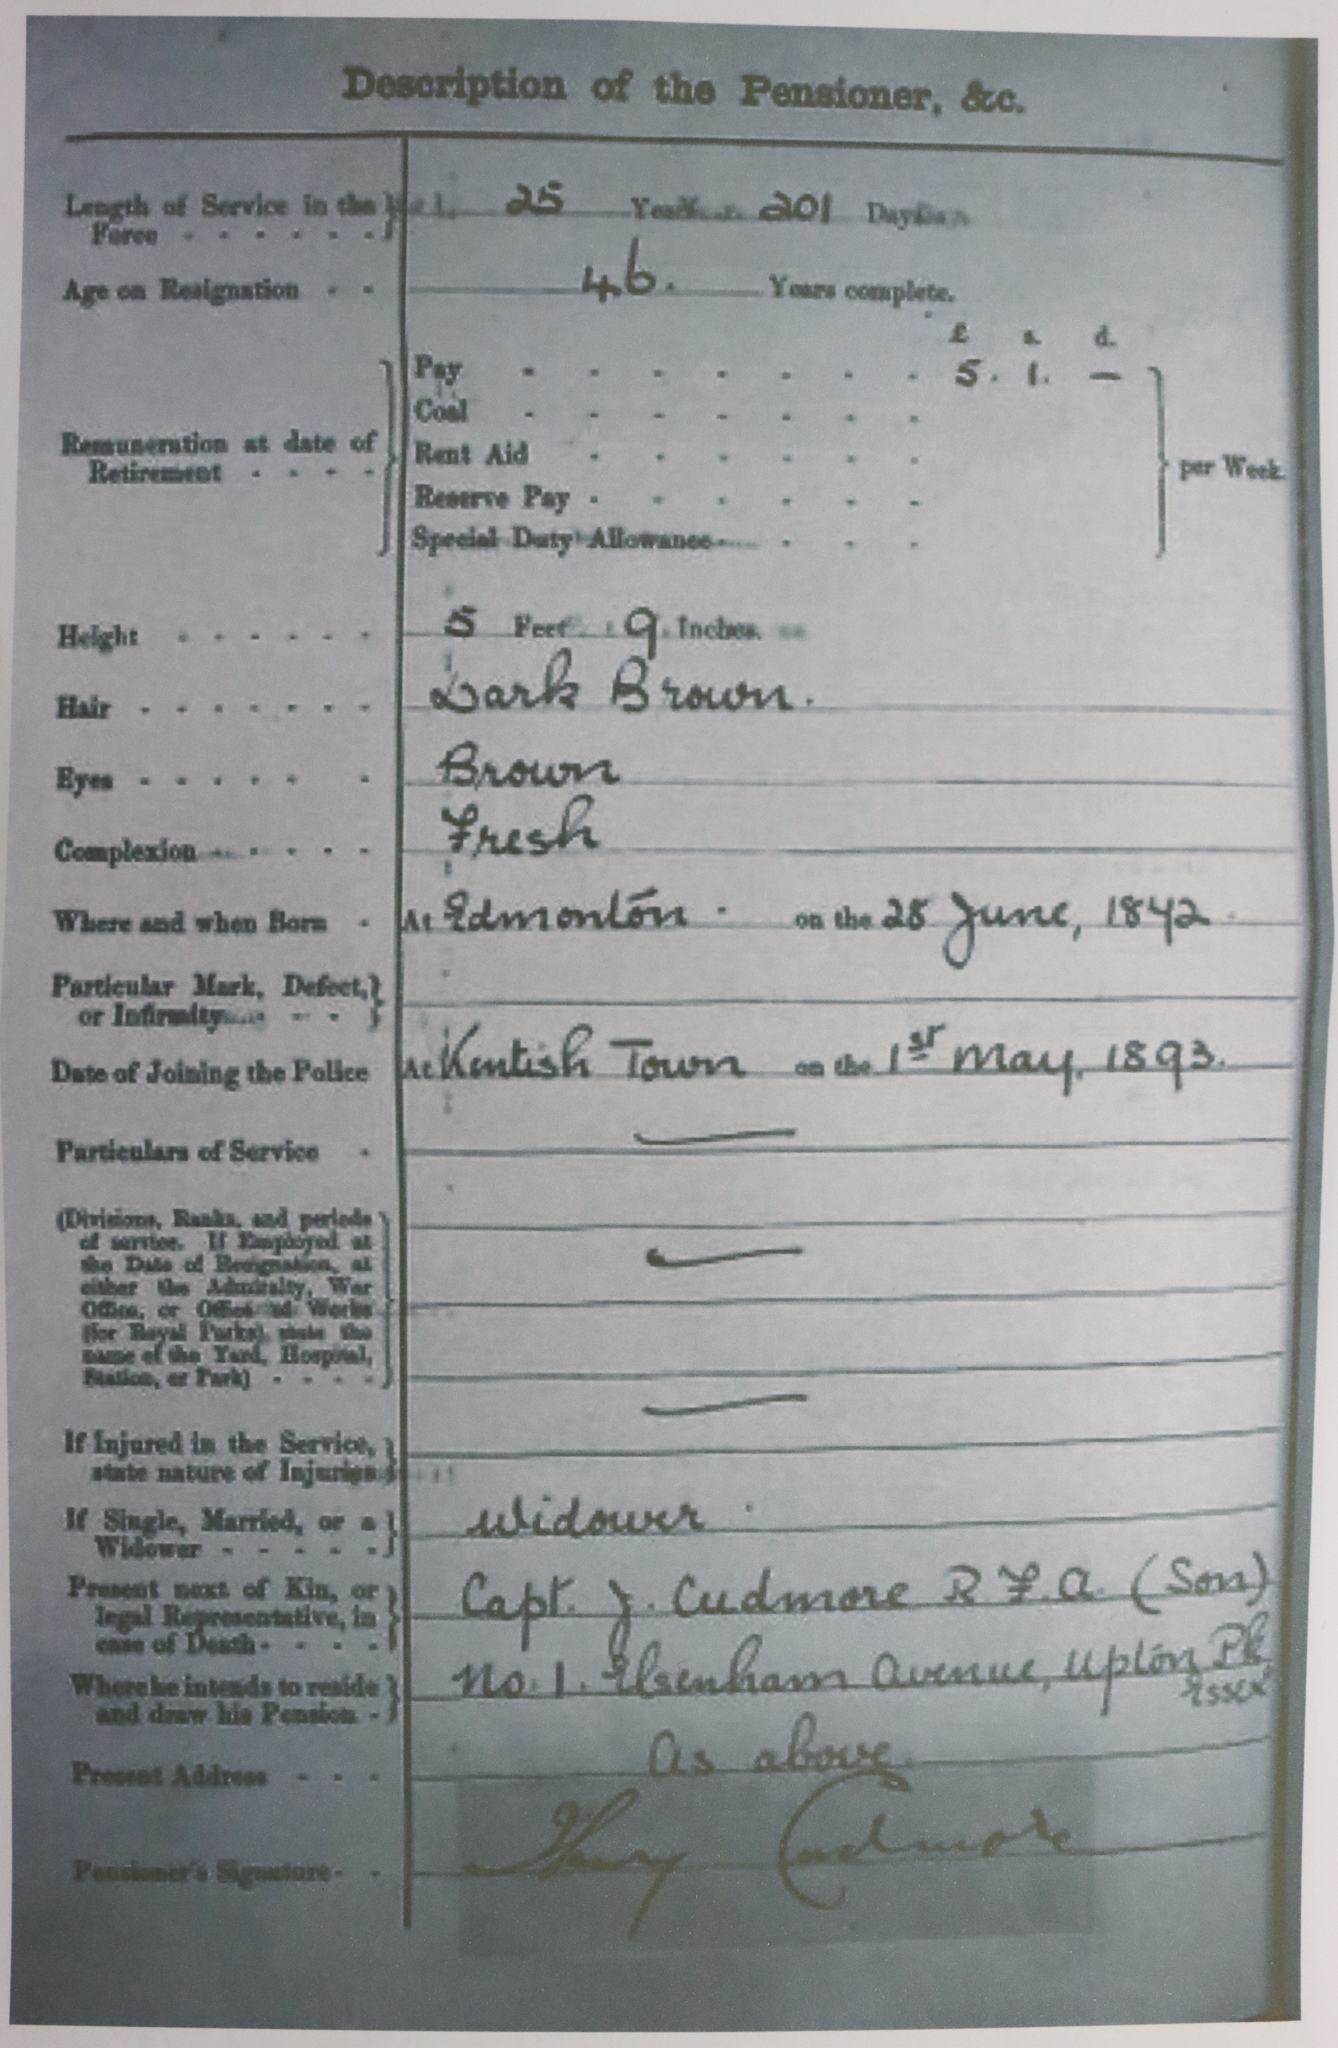 Description of the Pensioner, &c.
Length of Service in the Force - - - - - - 25 Years 201 Days
Age on Resignation - - 46. Years complete.
£ s. d.
Remuneration at date of Retirement - - - -
Pay - - - - - - - 5. 1. —
Coal - - - - - - -
Rent Aid - - - - - -
Reserve Pay - - - - - -
Special Duty Allowance - - - -
per Week.
Height - - - - - - 5 Feet 9 Inches.
Hair - - - - - - - Dark Brown.
Eyes - - - - - - Brown
Complexion - - - - - Fresh
Where and when Born - At Edmonton. on the 28 June, 1842.
Particular Mark, Defect, or Infirmity - - -
Date of Joining the Police At Kentish Town on the 1st May, 1893.
Particulars of Service -
(Divisions, Ranks, and periods
of service. If Employed at
the Date of Resignation, at
either the Admiralty, War
Office, or Office of Works
(for Royal Parks), state the
name of the Yard, Hospital,
Station, or Park) - - - -
If Injured in the Service, state nature of Injuries
If Single, Married, or a Widower - - - - - Widower
Present next of Kin, or legal Representative, in case of Death - - - - Capt. J. Cudmore R.F.A. (Son)
Where he intends to reside and draw his Pension - No. 1. Elsenham Avenue, Upton Pk Essex
Present Address - - - As above.
Pensioner's Signature - - Henry Cudmore